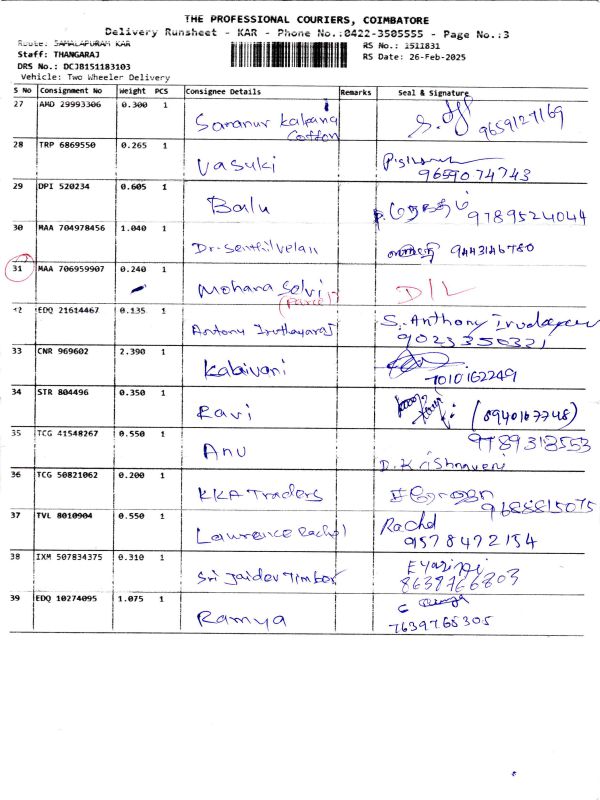 THE PROFESSIONAL COURIERS, COIMBATORE
Delivery Runsheet - KAR - Phone No.:0422-3505555 - Page No.:3
Route: SAMALAPURAM KAR
RS No.: 1511831
Staff: THANGARAJ
RS Date: 26-Feb-2025
DRS No.: DCJB151183103
Vehicle: Two Wheeler Delivery
S No Consignment No Weight PCS Consignee Details Remarks Seal & Signature
27 AMD 29993306 0.300 1
Cotton 9659127169
28 TRP 6869550 0.265 1
Vasuki
9659074743
29 DPI 520234 0.605 1
Balu 9789524044
30 MAA 704978456 1.040 1
Dr. Senthilvelan 9443146780
31 MAA 706959907 0.240 1
Mohana Selvi D/L
(Parcel)
EDQ 21614467 0.135 1
Antony S. Anthony
9023350321
33 CNR 969602 2.390 1
Kalaivani
7010162249
34 STR 804496 0.350 1
Ravi (8940167748)
35 TCG 41548267 0.550 1
9789318553
Anu D. Krishnaveni
36 TCG 50821062 0.200 1
KKA Traders
9688815075
37 TVL 8010904 0.550 1
Lawrence Rachel Rachel
9578472154
38 IXM 507834375 0.310 1
Sri Jaidev Timber
8639766803
39 EDQ 10274095 1.075 1
Ramya
7639765305